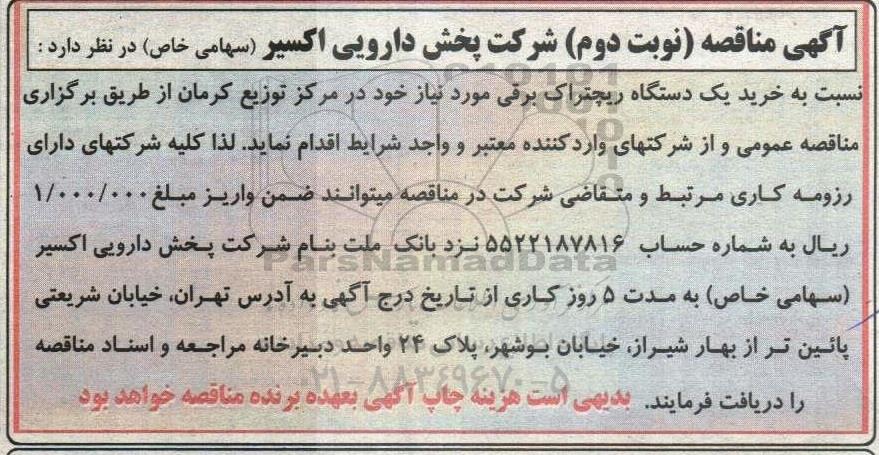 آگهی مناقصه (نوبت دوم) شرکت پخش دارویی اکسیر (سهامی خاص) در نظر دارد :
نسبت به خرید یک دستگاه ریچتراک برقی مورد نیاز خود در مرکز توزیع کرمان از طریق برگزاری
مناقصه عمومی و از شرکتهای واردکننده معتبر و واجد شرایط اقدام نماید. لذا کلیه شرکتهای دارای
رزومه کاری مرتبط و متقاضی شرکت در مناقصه میتوانند ضمن واریز مبلغ ۱/۰۰۰/۰۰۰
ریال به شماره حساب ۵۵۲۲۱۸۷۸۱۶ نزد بانک ملت بنام شرکت پخش دارویی اکسیر
(سهامی خاص) به مدت ۵ روز کاری از تاریخ درج آگهی به آدرس تهران، خیابان شریعتی
پائین تر از بهار شیراز، خیابان بوشهر، پلاک ۲۴ واحد دبیرخانه مراجعه و اسناد مناقصه
را دریافت فرمایند. بدیهی است هزینه چاپ آگهی بعهده برنده مناقصه خواهد بود
ParsNamadData
۰۲۱-۸۸۳۴۹۶۷۰-۵